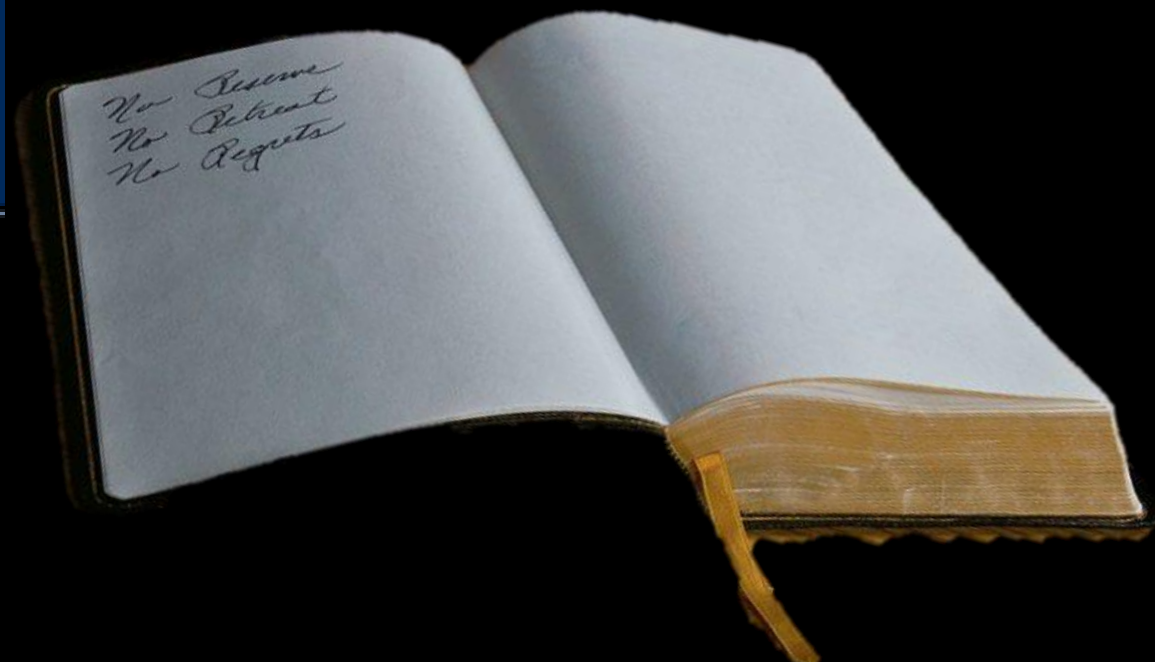 No Reserve
No Retreat
No Regrets